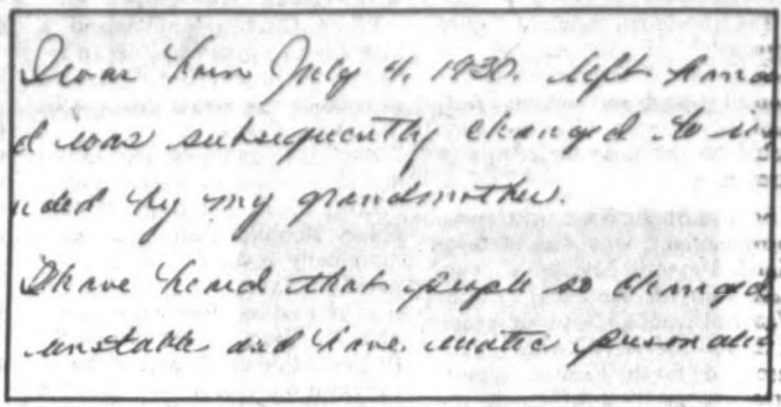 I was born July 4, 1930. left hand
d was subsequently changed to
nded by my grandmother.
I have heard that people so changed
unstable and have personali